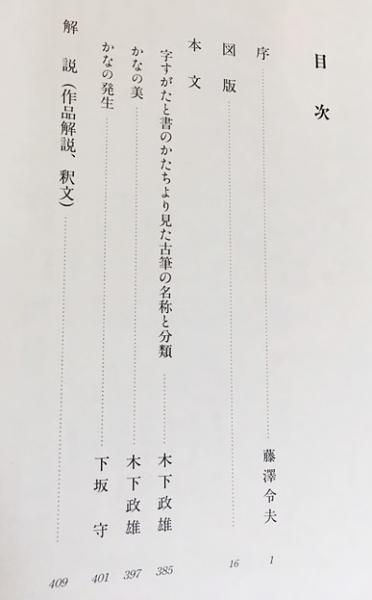 目次
序 藤澤令夫 1
図版 16
本文
字すがたと書のかたちより見た古筆の名称と分類 木下政雄 385
かなの美 木下政雄 397
かなの発生 下坂守 401
解説(作品解説、釈文) 409